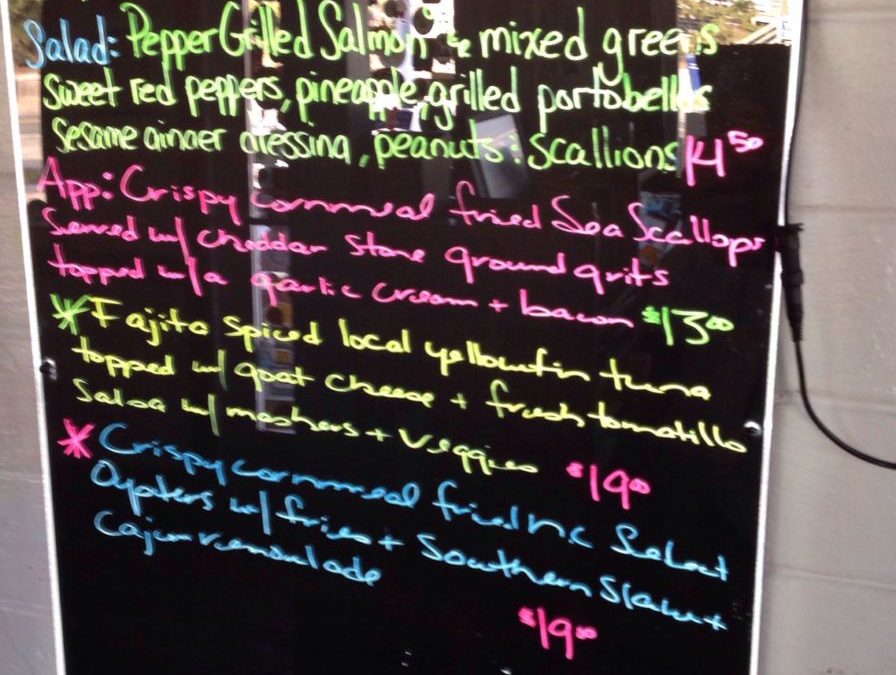 Salad: Pepper Grilled Salmon & mixed greens
Sweet red peppers, pineapple, grilled portobellos
Sesame ginger dressing, peanuts: Scallions 14 50
App: Crispy cornmeal fried Sea Scallops
Served w/ cheddar stone ground grits
topped w/a garlic cream + bacon $13.00
* Fajita spiced local yellowfin tuna
topped w/ goat cheese + fresh tomatillo
Salsa w/ mashers + veggies $19.00
* Crispy cornmeal fried N.C. Select
Oysters w/ fries + Southern Slaw +
Cajun remoulade
$19.00